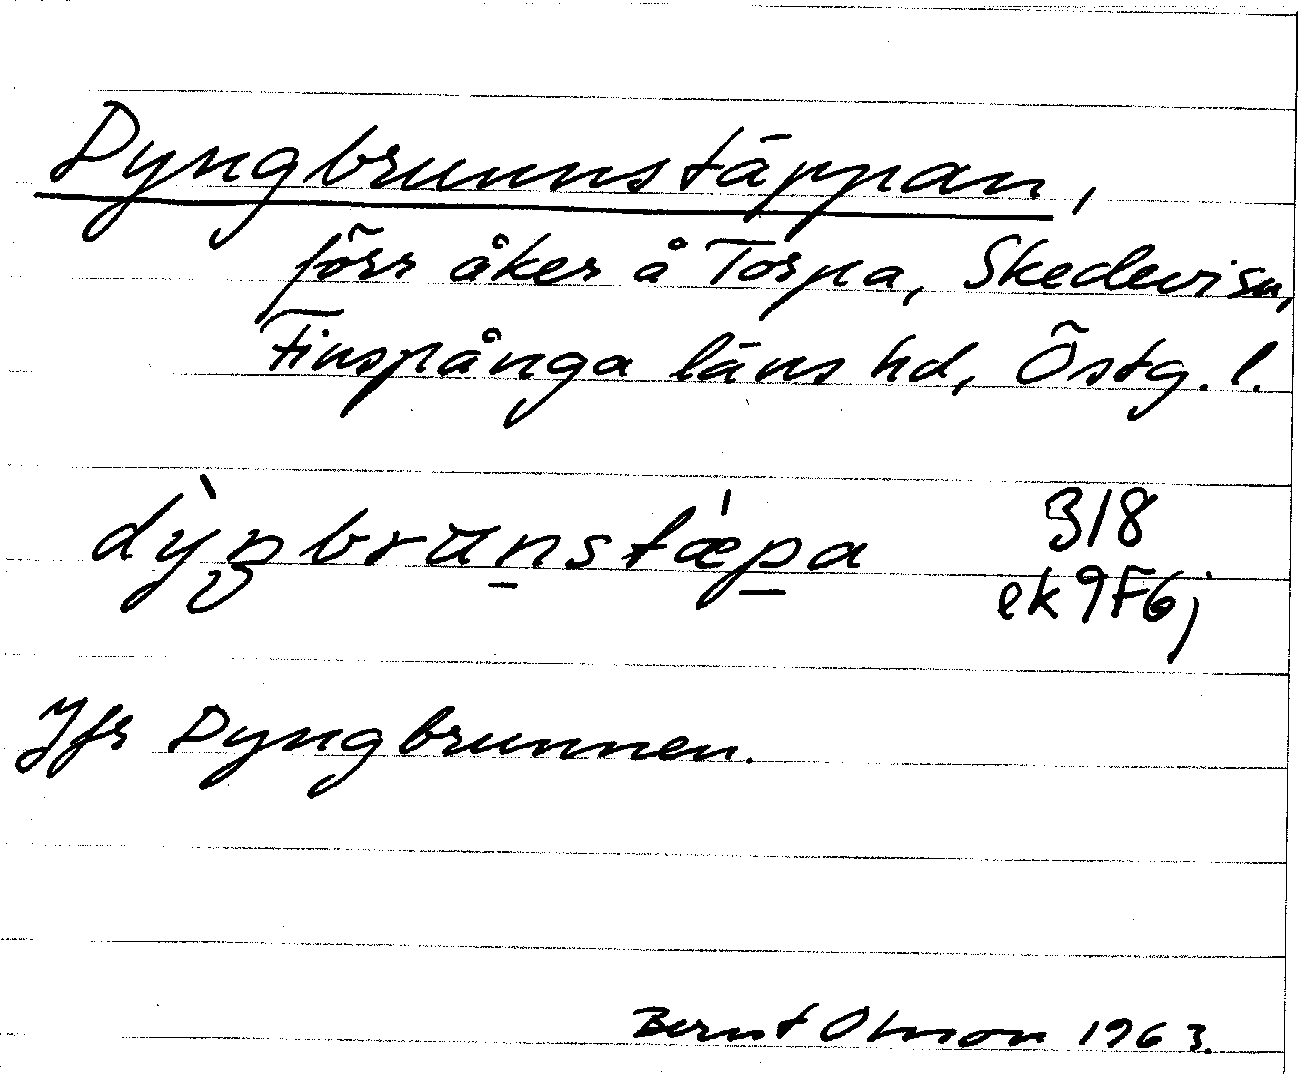 Dyngbrunnstäppan,
förr åker å Torpa, Skedevi sn,
Finspånga läns hd, Östg. l.
dỳŋbrunstǽpa 318
ek9F6j
Jfr Dyngbrunnen.
Bernt Olsson 1963.